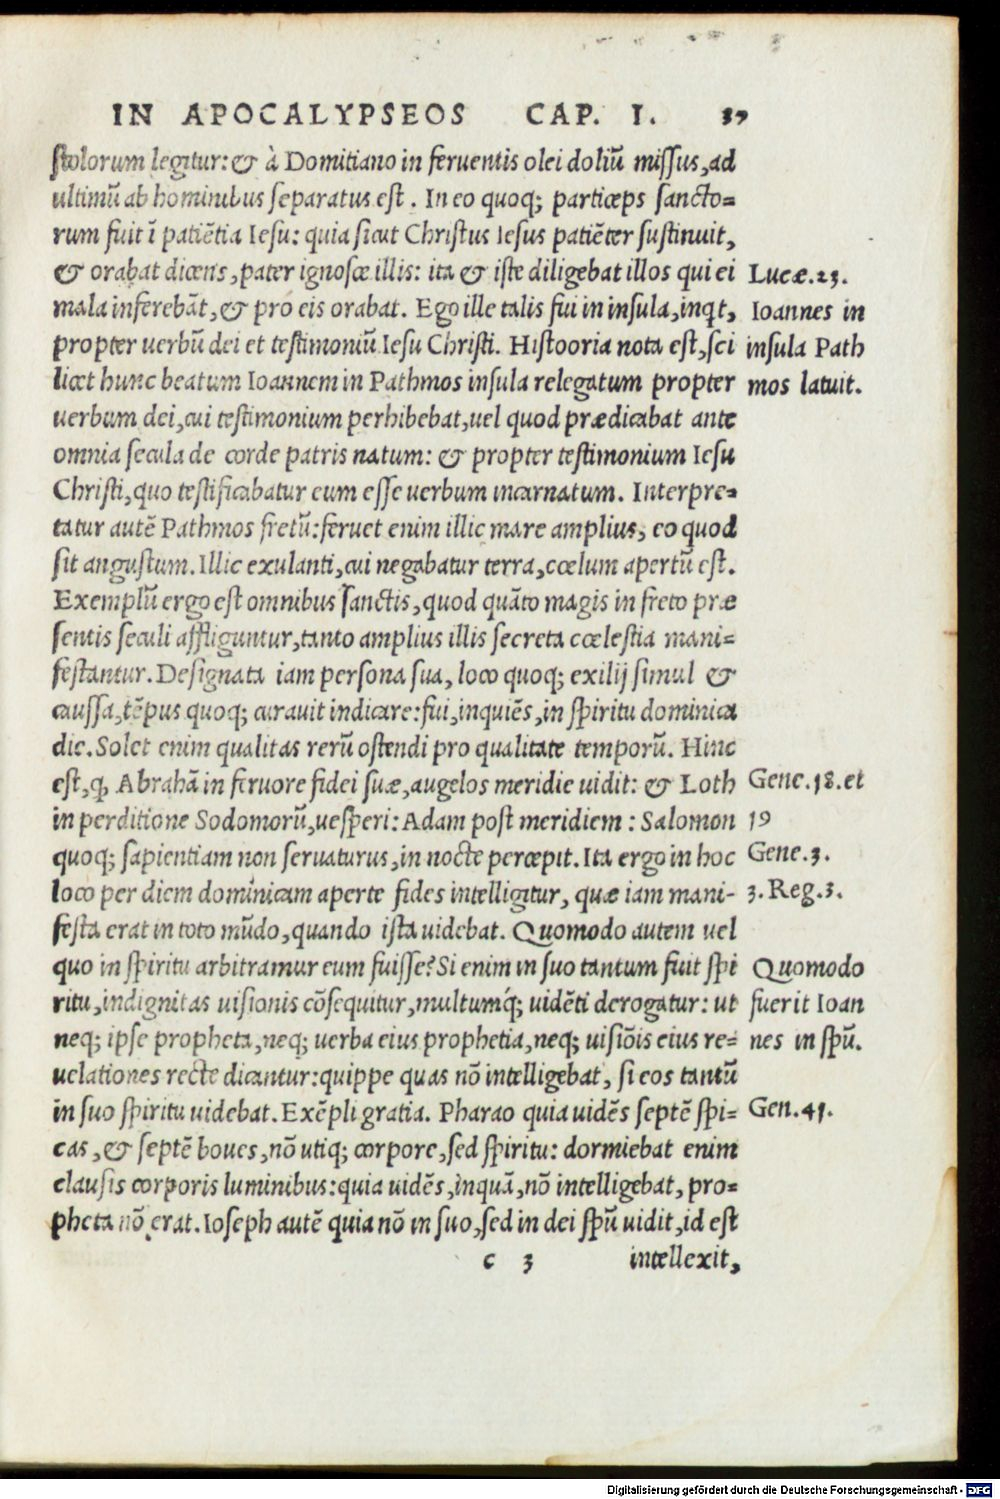 IN APOCALYPSEOS CAP. I. 37
stolorum legitur: & à Domitiano in feruentis olei doliũ missus, ad
ultimũ ab hominibus separatus est. In eo quoq; particeps sancto=
rum fuit ĩ patiẽtia Iesu: quia sicut Christus Iesus patiẽter sustinuit,
& orabat dicens, pater ignosce illis: ita & iste diligebat illos qui ei
Lucæ.23.
mala inferebãt, & pro eis orabat. Ego ille talis fui in insula, inqt,
Ioannes in
propter uerbũ dei et testimoniũ Iesu Christi. Histooria nota est, sci
insula Path
licet hunc beatum Ioannem in Pathmos insula relegatum propter
mos latuit.
uerbum dei, cui testimonium perhibebat, uel quod prædicabat ante
omnia secula de corde patris natum: & propter testimonium Iesu
Christi, quo testificabatur eum esse uerbum incarnatum. Interpre=
tatur autẽ Pathmos fretũ: feruet enim illic mare amplius, eo quod
sit angustum. Illic exulanti, cui negabatur terra, cœlum apertũ est.
Exemplũ ergo est omnibus sanctis, quod quãto magis in freto præ
sentis seculi affliguntur, tanto amplius illis secreta cœlestia mani=
festantur. Designata iam persona sua, loco quoq; exilij simul &
caussa, tẽpus quoq; curauit indicare: fui, inquiẽs, in spiritu dominica
die. Solet enim qualitas rerũ ostendi pro qualitate temporũ. Hinc
est, ꝙ Abrahã in feruore fidei suæ, augelos meridie uidit: & Loth
Gene.18.et
in perditione Sodomorũ, uesperi: Adam post meridiem: Salomon
19
quoq; sapientiam non seruaturus, in nocte percepit. Ita ergo in hoc
Gene.3.
loco per diem dominicam aperte fides intelligitur, quæ iam mani-
3.Reg.3.
festa erat in toto mũdo, quando ista uidebat. Quomodo autem uel
quo in spiritu arbitramur eum fuisse? Si enim in suo tantum fuit spi
Quomodo
ritu, indignitas uisionis cõsequitur, multumq́; uidẽti derogatur: ut
fuerit Ioan
neq; ipse propheta, neq; uerba eius prophetia, neq; uisiõis eius re=
nes in spũ.
uelationes recte dicantur: quippe quas nõ intelligebat, si eos tantũ
in suo spiritu uidebat. Exẽpli gratia. Pharao quia uidẽs septẽ spi=
Gen.41.
cas, & septẽ boues, nõ utiq; corpore, sed spiritu: dormiebat enim
clausis corporis luminibus: quia uidẽs, inquã, nõ intelligebat, pro=
pheta nõ erat. Ioseph autẽ quia nõ in suo, sed in dei spũ uidit, id est
c 3 intellexit,
Digitalisierung gefördert durch die Deutsche Forschungsgemeinschaft - DFG